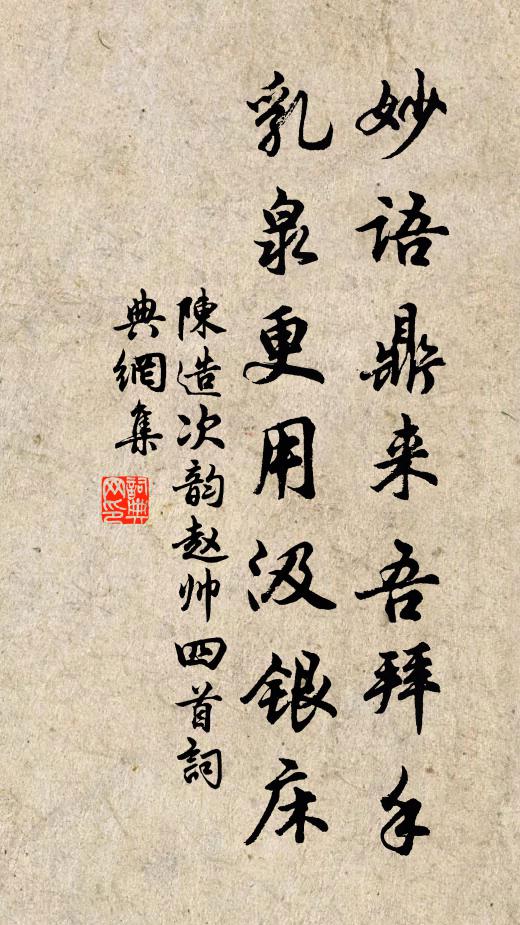 妙语鼎来吾拜手
乳泉更用汲银床
陳造次韵赵帅四首詞
典網集
詞典
网印